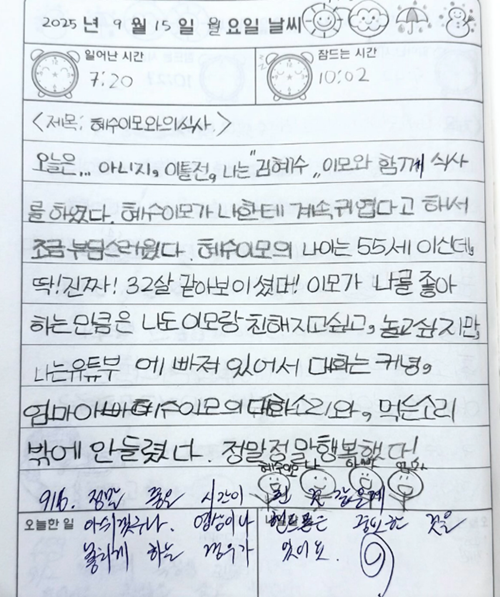 2025년 9월 15일 월요일 날씨
일어난 시간
7:20
잠드는 시간
10:02
<제목: 혜수이모와의식사>
오늘은... 아니지, 이틀전, 나는 "김혜수" 이모와 함께 식사
를 하였다. 혜수이모가 나한테 계속귀엽다고 하셔
조금부담스러웠다. 혜수이모의 나이는 55세 이신데,
딱!진짜! 32살 같아보이셨다! 이모가 나를 좋아
하는만큼은 나도이모랑 친해지고싶고, 놀고싶지만,
나는유튜부에 빠져 있어서 대화는 커녕,
엄마아빠혜수이모의 대화소리와, 먹는소리
밖에 안들렸다. 정말정말행복했다!
혜수이모 나 아빠 엄마
9/16. 정말 좋은 시간이 된 것 같은데
오늘한 일
아쉬웠구나. 영상이나 핸드폰은 중요한 것을
못하게 하는 경우가 있어요.